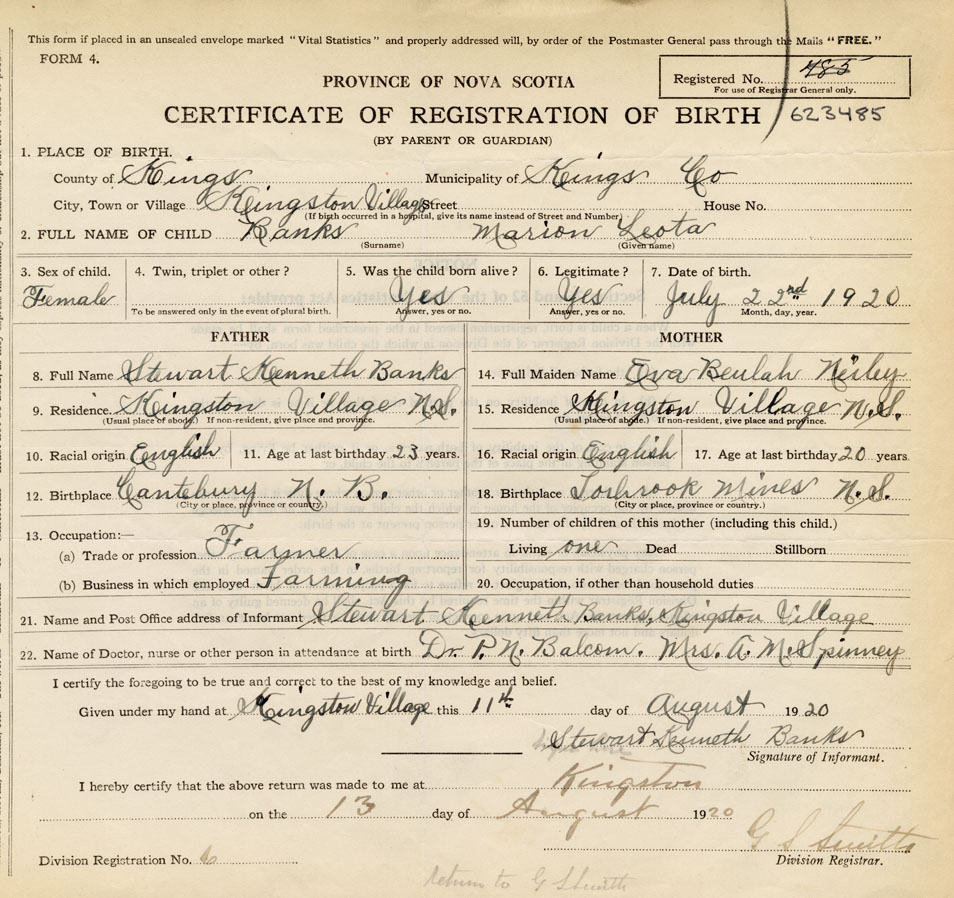 This form if placed in an unsealed envelope marked "Vital Statistics" and properly addressed will, by order of the Postmaster General pass through the Mails "FREE."
FORM 4.
Registered No. 485
For use of Registrar General only.
PROVINCE OF NOVA SCOTIA
CERTIFICATE OF REGISTRATION OF BIRTH 623485
(BY PARENT OR GUARDIAN)
1. PLACE OF BIRTH.
County of Kings Municipality of Kings Co
City, Town or Village Kingston Village Street House No.
(If birth occurred in a hospital, give its name instead of Street and Number)
2. FULL NAME OF CHILD Banks Marion Leota
(Surname) (Given name)
3. Sex of child. 4. Twin, triplet or other? 5. Was the child born alive? 6. Legitimate? 7. Date of birth.
Female Yes Yes July 22nd 1920
To be answered only in the event of plural birth. Answer, yes or no. Answer, yes or no. Month, day, year.
FATHER MOTHER
8. Full Name Stewart Kenneth Banks 14. Full Maiden Name Eva Beulah Neiley
9. Residence. Kingston Village N.S. 15. Residence Kingston Village N.S.
(Usual place of abode.) If non-resident, give place and province. (Usual place of abode.) If non-resident, give place and province.
10. Racial origin English 11. Age at last birthday 23 years. 16. Racial origin English 17. Age at last birthday 20 years.
12. Birthplace Cantebury N. B. 18. Birthplace Torbrook Mines N.S.
(City or place, province or country.) (City or place, province or country.)
13. Occupation:— 19. Number of children of this mother (including this child.)
(a) Trade or profession Farmer Living one Dead Stillborn
(b) Business in which employed Farming 20. Occupation, if other than household duties
21. Name and Post Office address of Informant Stewart Kenneth Banks, Kingston Village
22. Name of Doctor, nurse or other person in attendance at birth Dr. P. N. Balcom. Mrs. A. M. Spinney
I certify the foregoing to be true and correct to the best of my knowledge and belief.
Given under my hand at Kingston Village this 11th day of August 1920
Stewart Kenneth Banks
Signature of Informant.
I hereby certify that the above return was made to me at Kingston
on the 13 day of August 1920
G S Smith
Division Registration No. 6 Division Registrar.
return to G S Smith